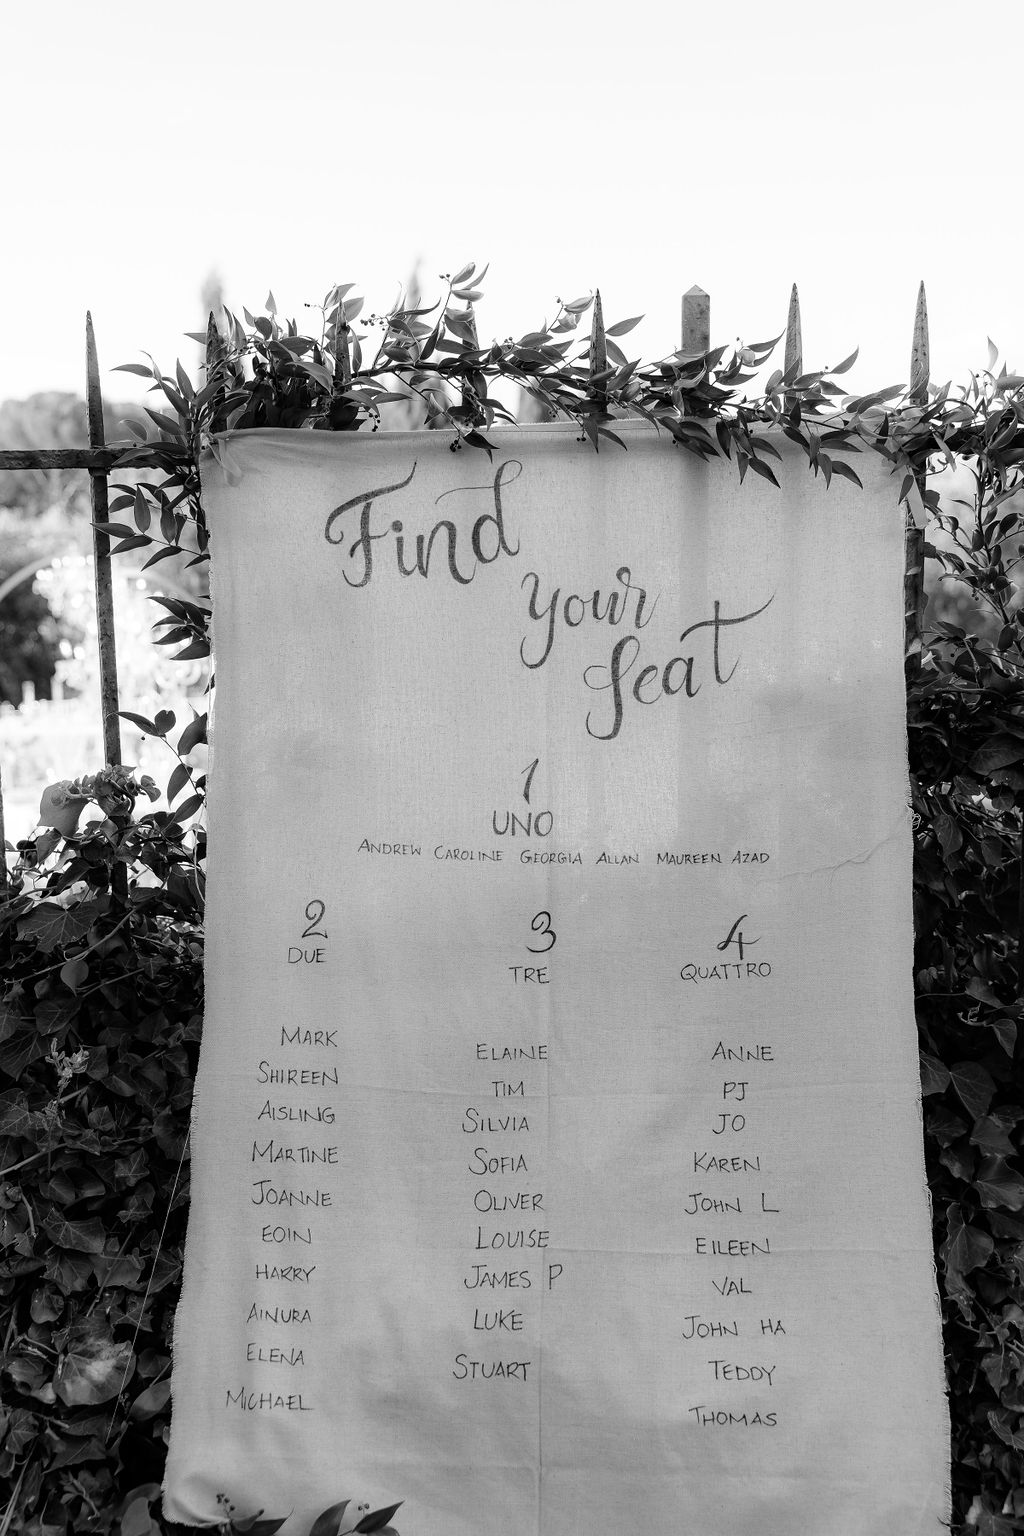 Find
your
Seat
1
UNO
ANDREW CAROLINE GEORGIA ALLAN MAUREEN AZAD
2
DUE
MARK
SHIREEN
AISLING
MARTINE
JOANNE
EOIN
HARRY
AINURA
ELENA
MICHAEL
3
TRE
ELAINE
TIM
SILVIA
SOFIA
OLIVER
LOUISE
JAMES P
LUKE
STUART
4
QUATTRO
ANNE
PJ
JO
KAREN
JOHN L
EILEEN
VAL
JOHN HA
TEDDY
THOMAS